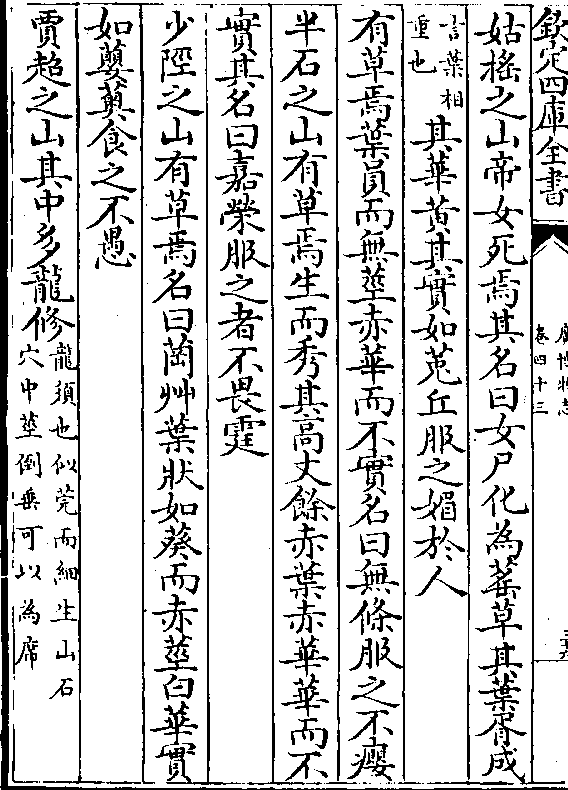 欽定四庫全書
廣博物志
卷四十三
姑榣之山帝女死焉其名曰女尸化為䔄草其葉胥成
言葉相
重也
其華黃其實如莬丘服之媚於人
有草焉葉員而無莖赤華而不實名曰無條服之不癭
半石之山有草焉生而秀其高丈餘赤葉赤華華而不
實其名曰嘉榮服之者不畏霆
少陘之山有草焉名曰䓘艸葉狀如葵而赤莖白華實
如蘡薁食之不愚
賈超之山其中多龍修
龍須也似莞而細生山石
穴中莖倒垂可以為席